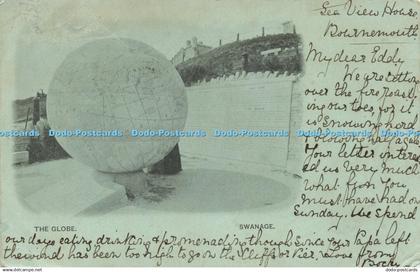 Sea View House,
Bournemouth
My dear Eddy
We are sitting
over the fire roast
ing our toes, for it
is snowing hard
& blowing half a gale
Your letter interest
ed us very much
What fun you
must have had on
Sunday. We spend
our days eating, drinking & promenading though since your Papa left
the wind has been too high to go on the Cliff or Pier. Love from
THE GLOBE. SWANAGE.
Dodo-Postcards Dodo-Postcards Dodo-Postcards Dodo-Postcards Dodo-Postcards